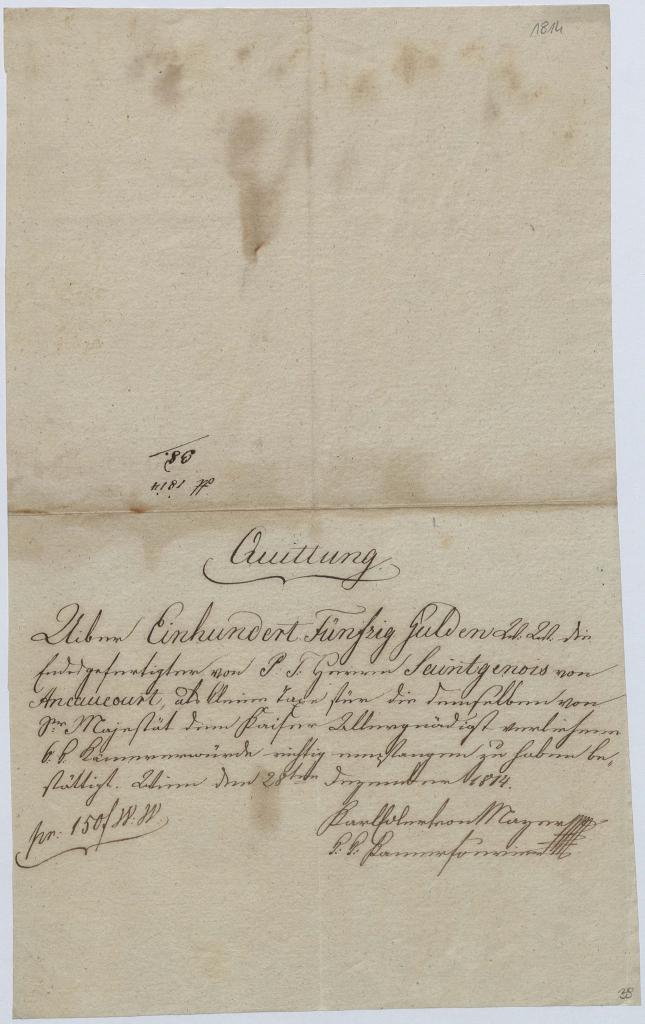 1814
38.
ff 1814
Quittung
Uiber Einhundert Fünfzig Gulden W. W. die
Endesgefertigter von P. T. Herrn Saintgenois von
Aneaucourt, als kleine Taxe für die demselben von
Sr Majestät dem Kaiser Allergnädigst verliehene
k. k. Kämmererwürde richtig empfangen zu haben be-
stättigt. Wien den 28ten Dezember 1814.
pr: 150 f W. W.
Karl von Mayer
k. k. Kammerfourier
38